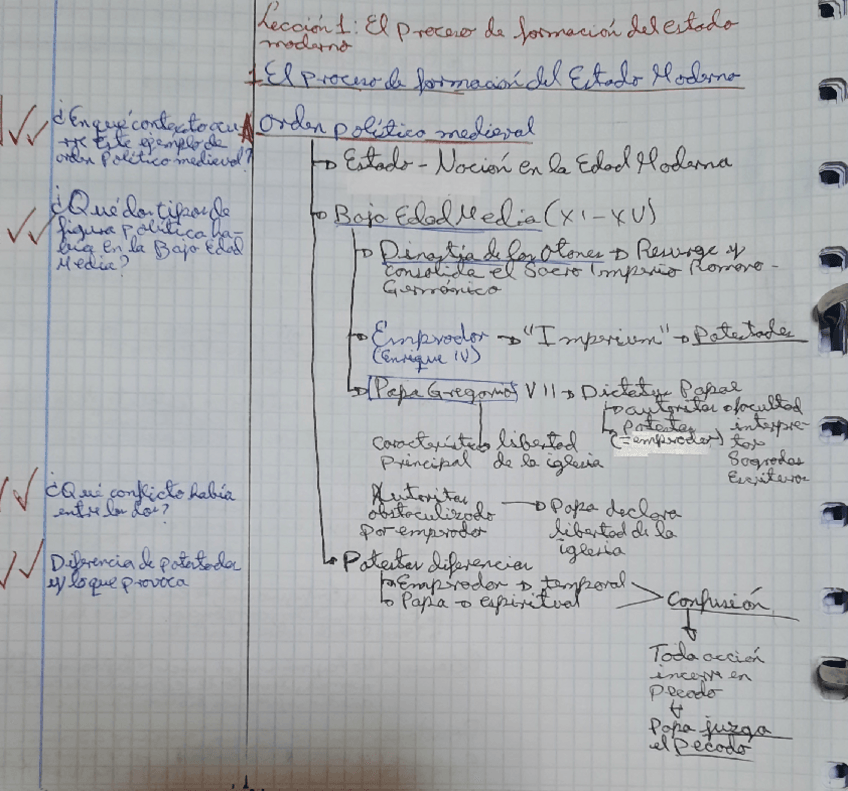 Lección 1: El proceso de formación del estado
moderno
1 El proceso de formación del Estado Moderno
A Orden político medieval
¿En qué contexto ocu-
rre este ejemplo de
orden político medieval?
→ Estado - Nación en la Edad Moderna
¿Qué dos tipos de
figura política ha-
bía en la Baja Edad
Media?
→ Baja Edad Media (XI - XV)
→ Dinastía de los Otones → Resurge y
consolida el Sacro Imperio Romano-
Germánico
→ Emprador → "Imperium" → Potestades
(Enrique IV)
→ Papa Gregorio VII → Dictatus Papae
→ autoritas o facultad
interpre-
tar
Sagradas
Escrituras
→ Potestas
(= emprador)
característica
principal
libertad
de la iglesia
Autoritas
obstaculizado
por emprador
→ Papa declara
libertad de la
iglesia
¿Qué conflicto había
entre los dos?
Diferencia de potestades
y lo que provoca
→ Potestas diferencias
→ Emprador → temporal
→ Papa → espiritual
> Confusión
↓
Toda acción
incurre en
Pecado
↓
Papa juzga
el Pecado